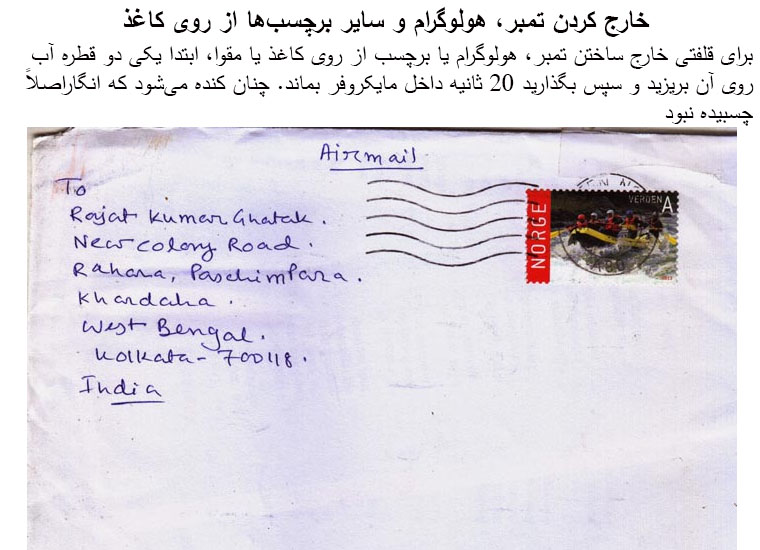 خارج کردن تمبر، هولوگرام و سایر برچسب‌ها از روی کاغذ
برای قلفتی خارج ساختن تمبر، هولوگرام یا برچسب از روی کاغذ یا مقوا، ابتدا یکی دو قطره آب
روی آن بریزید و سپس بگذارید 20 ثانیه داخل مایکروفر بماند. چنان کنده می‌شود که انگاراصلاً
چسبیده نبود
Airmail
To
Rajat Kumar Ghatak.
New colony Road.
Rahara, Paschimpara.
Khardaha.
West Bengal.
Kolkata - 700118.
India
NORGE
VERDEN A